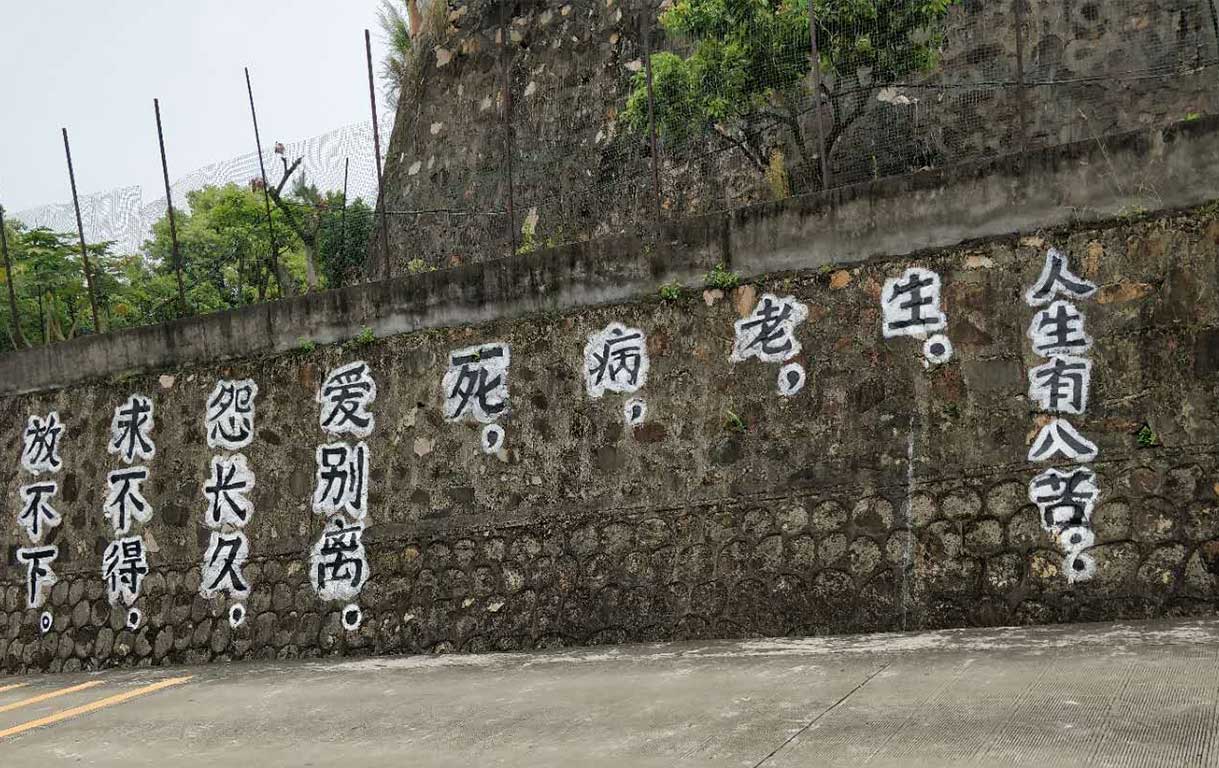 人生有八苦：
生。
老，
病，
死，
爱别离。
怨长久。
求不得。
放不下。